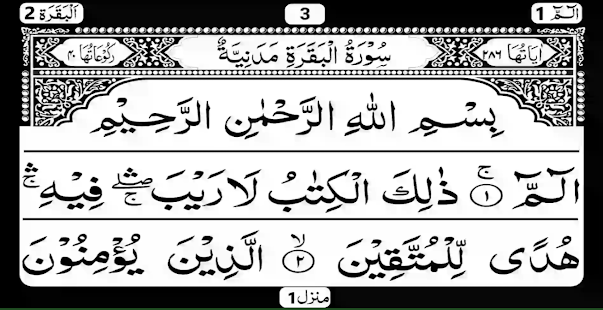 الٓمّٓ 1
3
اَلْبَقَرَة 2
اٰيَاتُهَا ٢٨٦
سُوْرَةُ الْبَقَرَةِ مَدَنِيَّةٌ
رُكُوْعَاتُهَا ٤٠
بِسْمِ اللّٰهِ الرَّحْمٰنِ الرَّحِيْمِ
الٓمّٓ ۚ ١ ذٰلِكَ الْكِتٰبُ لَا رَيْبَ ۛۖۚ فِيْهِ ۛۚ
هُدًى لِّلْمُتَّقِيْنَ ۙ ٢ الَّذِيْنَ يُؤْمِنُوْنَ
منزل 1